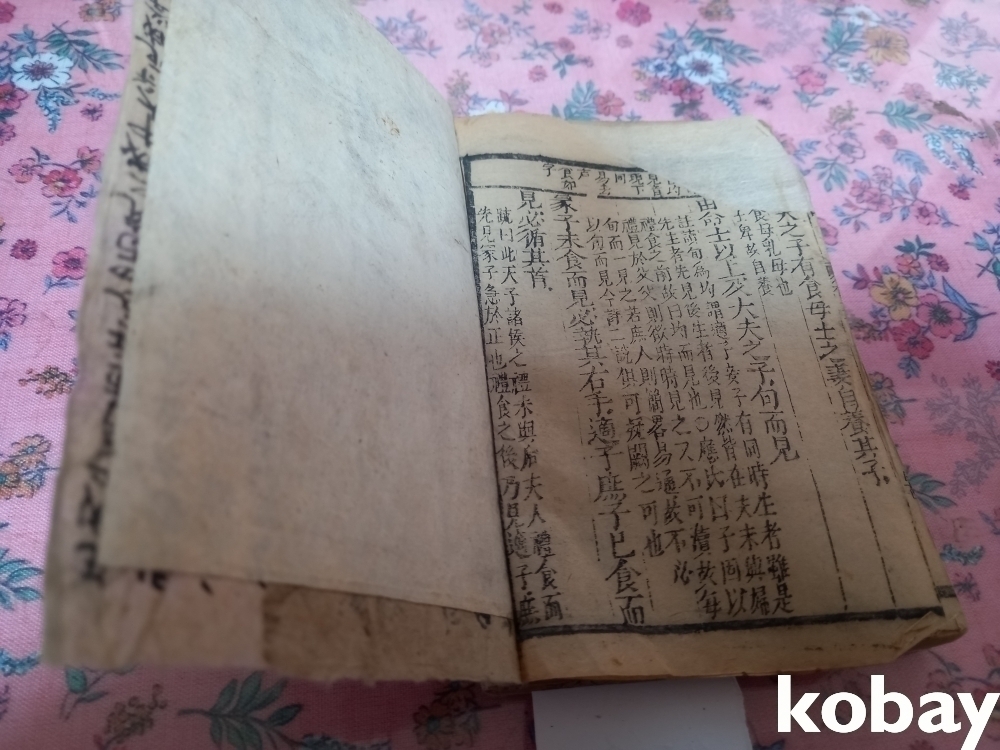 夫之子有食母士之妻自養其子。
食母乳母也
士卑故自養
由命士以上及大夫之子。旬而見
註讀旬為均謂適子妾子有同時生者雖是
先生者先見後生者後見然皆在夫未與婦
禮食之前故曰均而見也○應氏曰子固以
禮見於父父則欲時時見之又不可瀆故每
旬而一見之若庶人則簡畧易通故不必
以旬而見今詳二說俱可疑闕之可也
冢子未食而見。必執其右手。適子庶子已食而
見必循其首。
疏曰此天子諸侯之禮未與后夫人禮食而
先見冢子急於正也禮食之後乃見適子庶
kobay